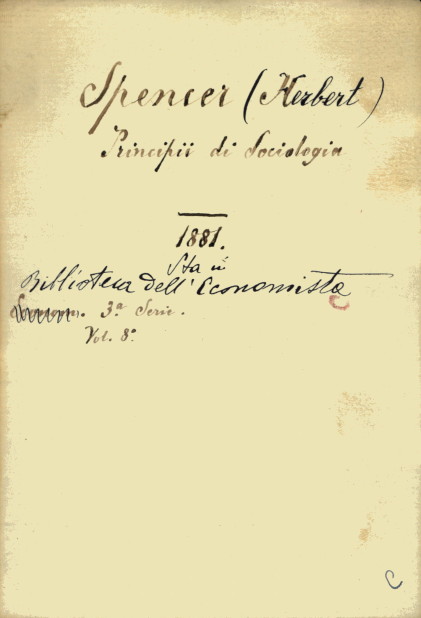 Spencer (Herbert)
Principii di Sociologia
1881.
Sta in
Biblioteca dell'Economista
3.a Serie.
Vol. 8°
C